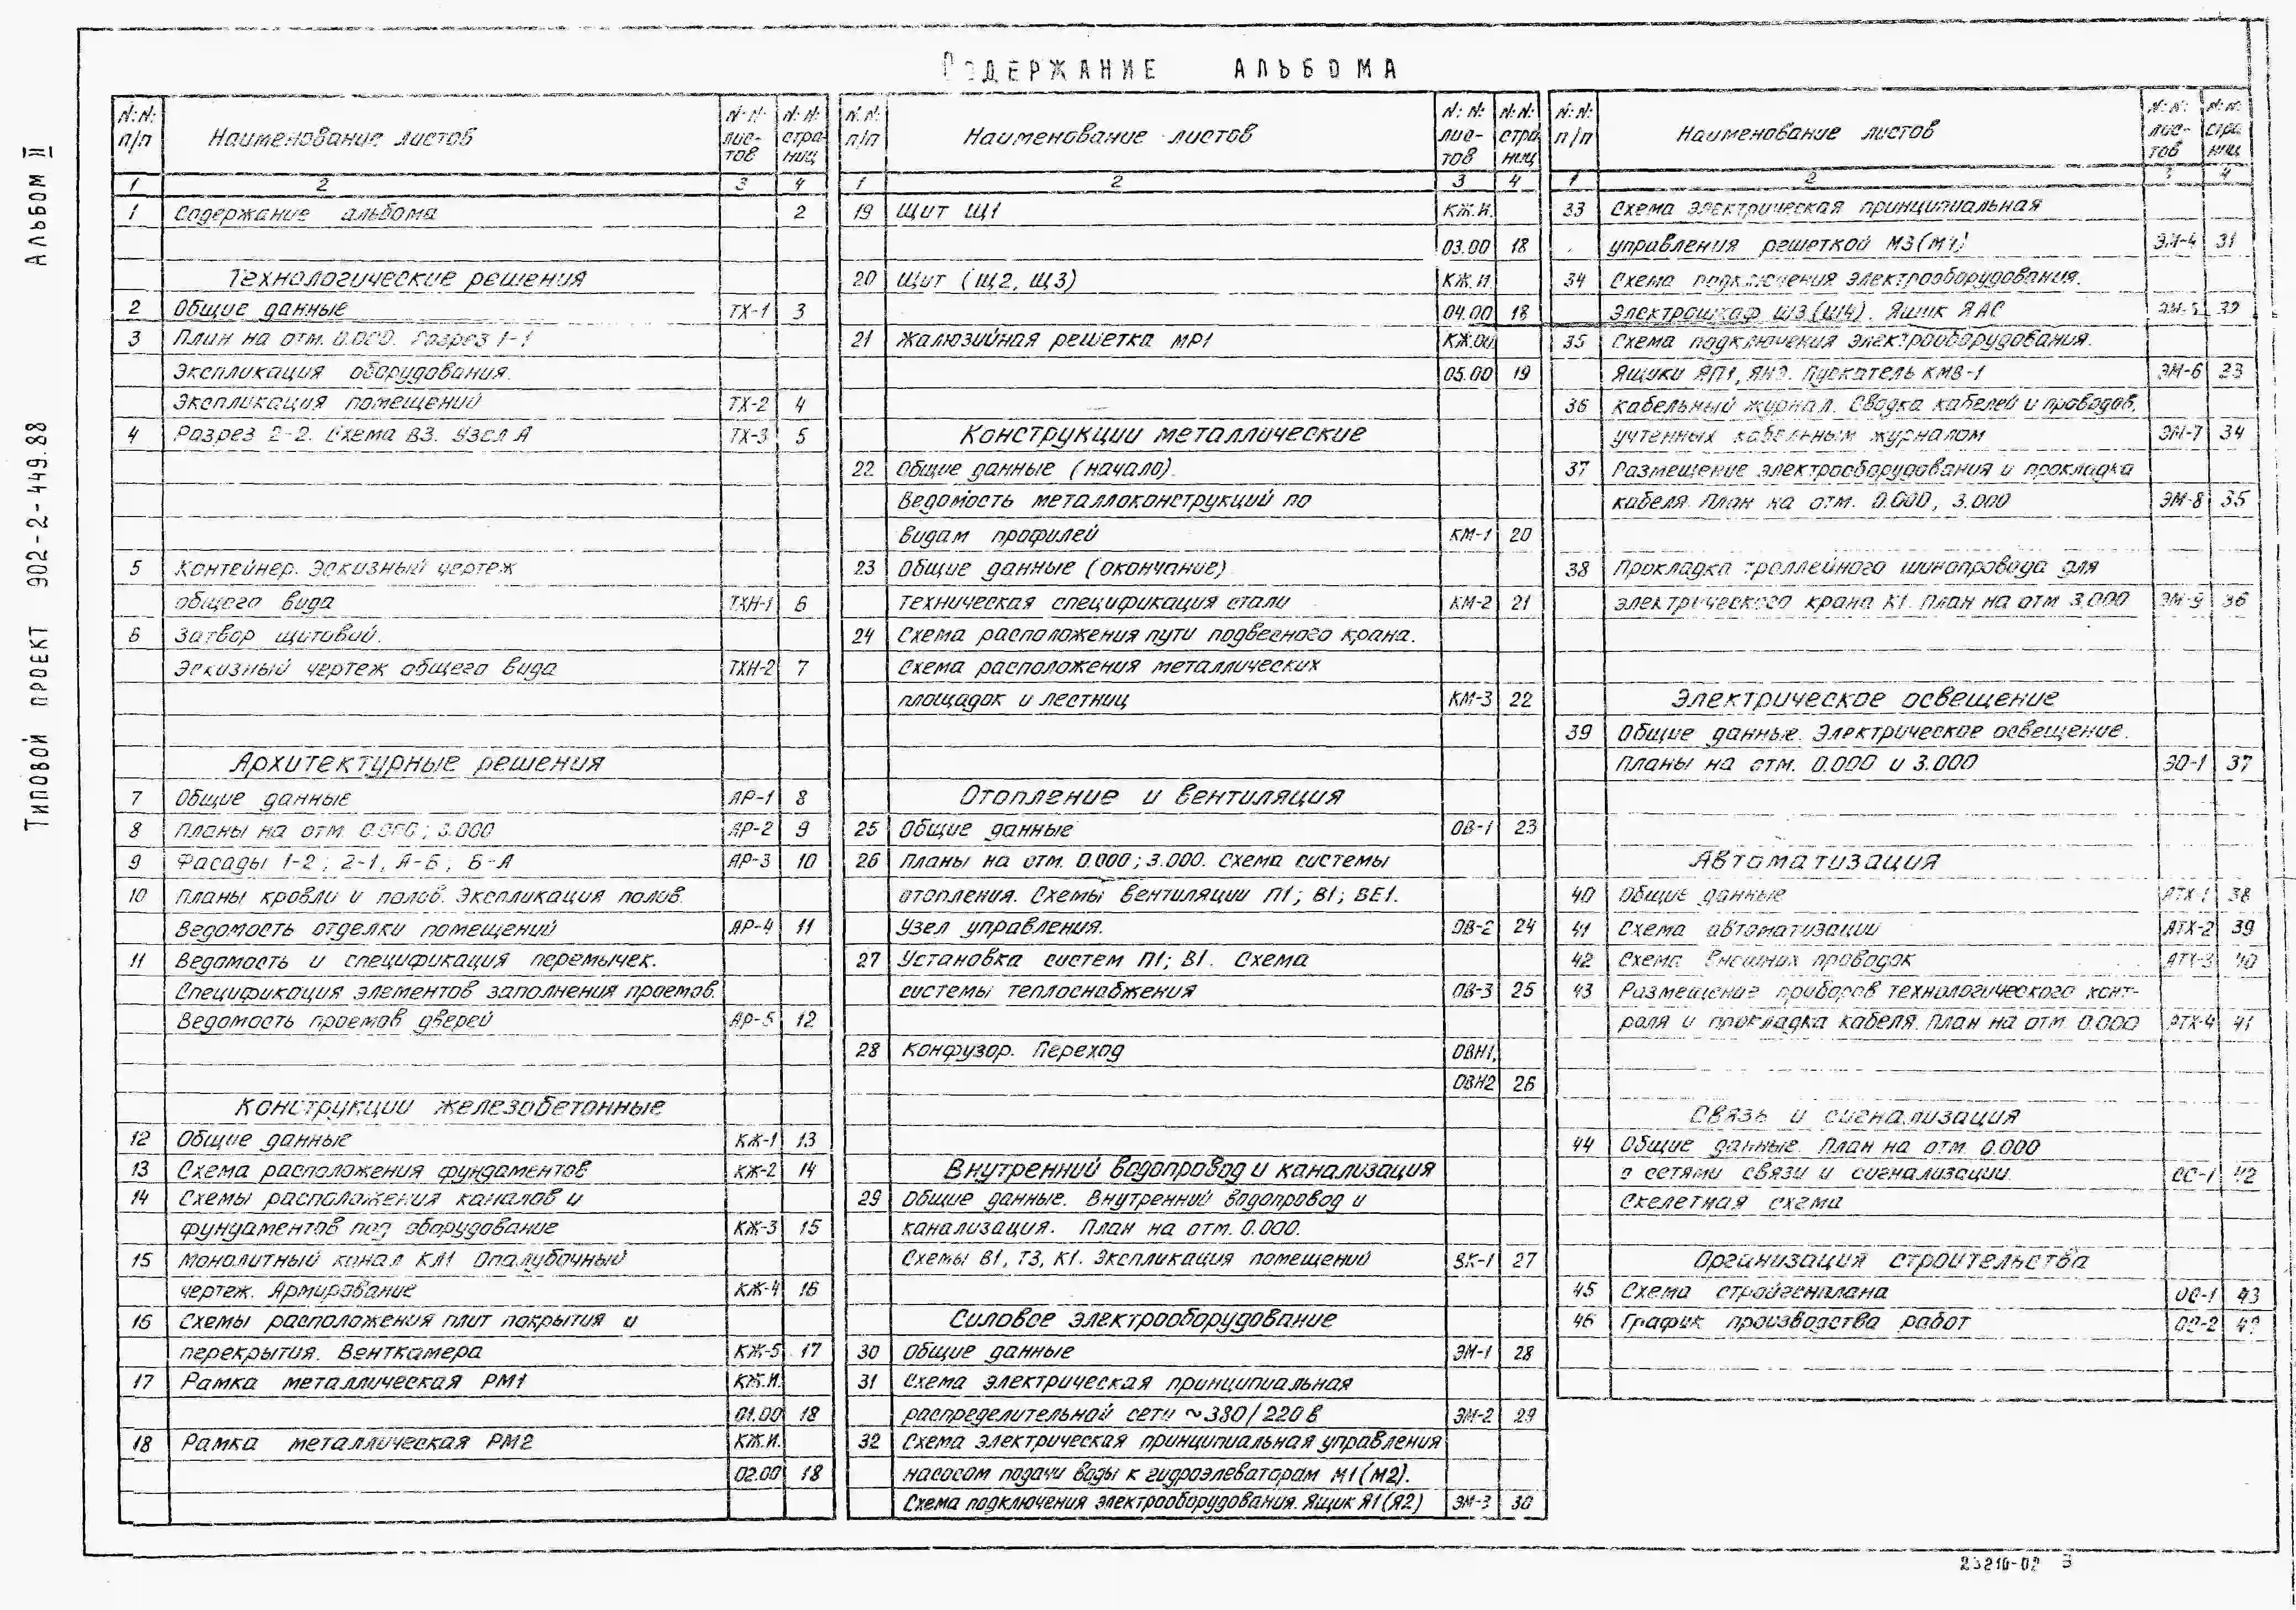 Содержание альбома
Типовой проект 902-2-449.88 Альбом II
N:N: п/п Наименование листов N:N: лис- N:N: стра
тов ниц
1 2 3 4
1 Содержание альбома 2
Технологические решения
2 Общие данные ТХ-1 3
3 План на отм. 0.000. Разрез 1-1
Экспликация оборудования.
Экспликация помещений ТХ-2 4
4 Разрез 2-2. Схема В3. Узел А ТХ-3 5
5 Контейнер. Эскизный чертеж
общего вида ТХН-1 6
6 Затвор щитовый.
Эскизный чертеж общего вида ТХН-2 7
Архитектурные решения
7 Общие данные АР-1 8
8 Планы на отм. 0.000; 3.000 АР-2 9
9 Фасады 1-2; 2-1, А-Б; Б-А АР-3 10
10 Планы кровли и полов. Экспликация полов.
Ведомость отделки помещений АР-4 11
11 Ведомость и спецификация перемычек.
Спецификация элементов заполнения проемов.
Ведомость проемов дверей АР-5 12
Конструкции железобетонные
12 Общие данные КЖ-1 13
13 Схема расположения фундаментов КЖ-2 14
14 Схемы расположения каналов и
фундаментов под оборудование КЖ-3 15
15 Монолитный канал КЛ1 Опалубочный
чертеж. Армирование КЖ-4 16
16 Схемы расположения плит покрытия и
перекрытия. Венткамера КЖ-5 17
17 Рамка металлическая РМ1 КЖ.И.
01.00 18
18 Рамка металлическая РМ2 КЖ.И.
02.00 18
N:N: п/п Наименование листов N:N: лис- N:N: стра
тов ниц
1 2 3 4
19 Щит Щ1 КЖ.И.
03.00 18
20 Щит (Щ2, Щ3) КЖ.И
04.00 18
21 Жалюзийная решетка МР1 КЖ.00
05.00 19
Конструкции металлические
22 Общие данные (начало).
Ведомость металлоконструкций по
видам профилей КМ-1 20
23 Общие данные (окончание)
Техническая спецификация стали КМ-2 21
24 Схема расположения пути подвесного крана.
Схема расположения металлических
площадок и лестниц КМ-3 22
Отопление и вентиляция
25 Общие данные ОВ-1 23
26 Планы на отм. 0.000; 3.000. Схема системы
отопления. Схемы вентиляции П1; В1; ВЕ1.
Узел управления. ОВ-2 24
27 Установка систем П1; В1. Схема
системы теплоснабжения ОВ-3 25
28 Конфузор. Переход ОВН1,
ОВН2 26
Внутренний водопровод и канализация
29 Общие данные. Внутренний водопровод и
канализация. План на отм. 0.000.
Схемы В1, Т3, К1. Экспликация помещений ВК-1 27
Силовое электрооборудование
30 Общие данные ЭМ-1 28
31 Схема электрическая принципиальная
распределительной сети ~380/220в ЭМ-2 29
32 Схема электрическая принципиальная управления
насосом подачи воды к гидроэлеваторам М1(М2).
Схема подключения электрооборудования. Ящик Я1(Я2) ЭМ-3 30
N:N: п/п Наименование листов N:N: лис- N:N: стра
тов ниц
1 2 3 4
33 Схема электрическая принципиальная
управления решеткой М3(М4) ЭМ-4 31
34 Схема подключения электрооборудования.
Электрошкаф Ш3(Ш4). Ящик ЯАС ЭМ-5 32
35 Схема подключения электрооборудования.
Ящики ЯП1, Пускатель КМ8-1 ЭМ-6 33
36 Кабельный журнал. Сводка кабелей и проводов,
учтенных кабельным журналом ЭМ-7 34
37 Размещение электрооборудования и прокладка
кабеля. План на отм. 0.000, 3.000 ЭМ-8 35
38 Прокладка троллейного шинопровода для
электрического крана К1. План на отм 3.000 ЭМ-9 36
Электрическое освещение
39 Общие данные. Электрическое освещение.
Планы на отм. 0.000 и 3.000 ЭО-1 37
Автоматизация
40 Общие данные АТХ-1 38
41 Схема автоматизации АТХ-2 39
42 Схема внешних проводок АТХ-3 40
43 Размещение приборов технологического конт-
роля и прокладка кабеля. План на отм. 0.000 АТХ-4 41
Связь и сигнализация
44 Общие данные. План на отм. 0.000
с сетями связи и сигнализации. СС-1 42
Скелетная схема
Организация строительства
45 Схема стройгенплана ОС-1 43
46 График производства работ ОС-2
23210-02 3